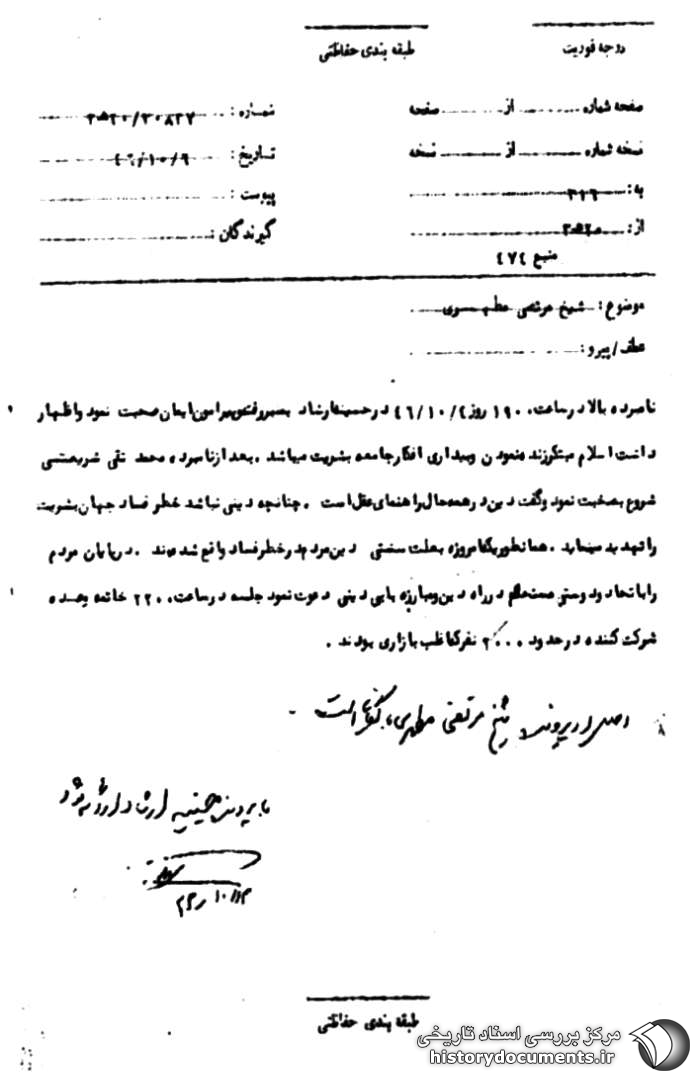 درجه فوریت
طبقه بندی حفاظتی
صفحه شماره ........ از ........ صفحه
شماره : ۲۰ه۲۰/۳۰۸۲۷
نسخه شماره ........ از ........ نسخه
تاریخ : ۴۶/۱۰/۹
به : ۳۱۶
پیوست :
از : ۲۰ه۲۰
گیرندگان :
منبع ۴۷۴
موضوع : شیخ مرتضی مطهری
عطف/پیرو :
نامبرده بالا در ساعت ۱۹۰۰ روز ۴۶/۱۰/۴ در حسینیه ارشاد بمنبر رفت و پیرامون ایمان صحبت نمود و اظهار
داشت اسلام مبتکر زنده نمودن و بیداری افکار جامعه بشریت میباشد . بعد از نامبرده محمد تقی شریعتی
شروع بصحبت نمود و گفت دین در همه حال راهنمای عقل است . چنانچه دینی نباشد خطر فساد جهان بشریت
را تهدید مینماید . همانطوریکه امروزه بعلت سستی دین مردم در خطر فساد واقع شده‌اند . در پایان مردم
را باتحاد و دوستی در راه دین و مبارزه با بی دینی دعوت نمود جلسه در ساعت ۲۲۰۰ خاتمه و عده
شرکت کننده در حدود ۲۰۰۰ نفر که اغلب بازاری بودند .
اصل در پرونده شیخ مرتضی مطهری بایگانی است .
با پرونده حسینیه ارشاد ارائه شود
۱۰/۱۳
طبقه بندی حفاظتی
مرکز بررسی اسناد تاریخی
historydocuments.ir